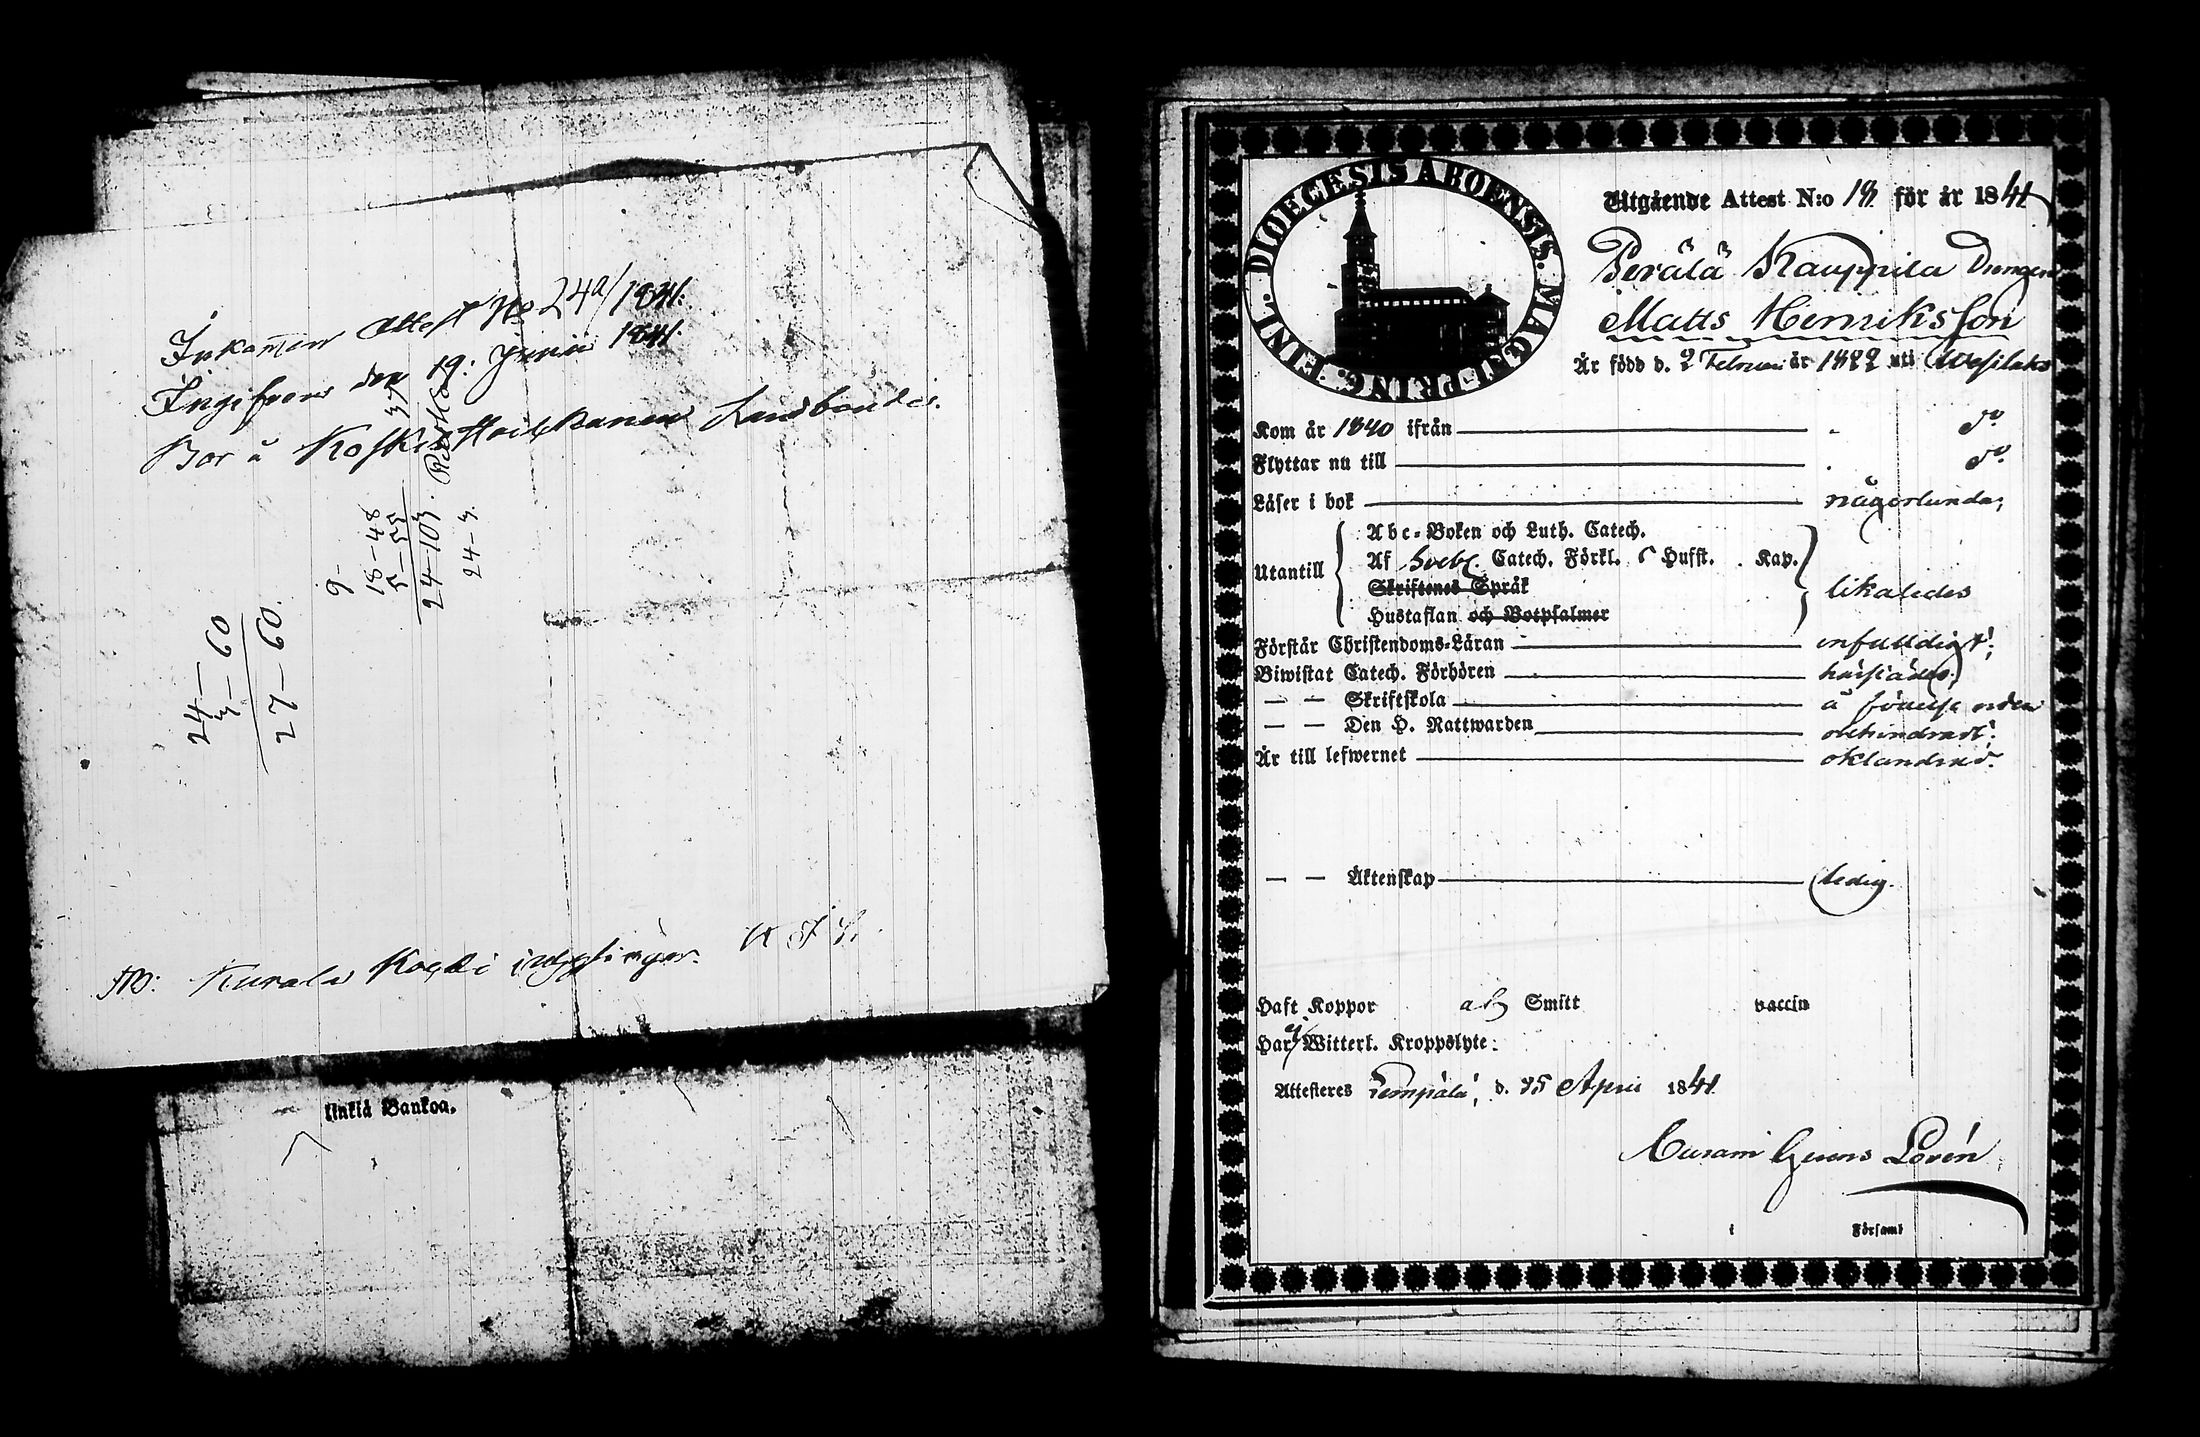 Inkommen Attest No 24a/1841.
Ingifven den 19: Junii 1841.
Bor å Koskis Landbondes.
9-
18-48
5-55
24-103.
24-3.
24-
3-60
27-60.
NB: Kurala Koski
linkiä Bankoa.
DIOECESIS ABOENSIS. MAGNI PRINC. FINL.
Utgående Attest N:o 18 för år 1841
Perälä Kauppila Drengen
Matts Henriksson
Är född d. 2 Februari år 1822 uti Wesilaks
Kom år 1840 ifrån do
Flyttar nu till do.
Läser i bok någorlunda;
Abc-Boken och Luth. Catech.
Utantill Af Sveb. Catech. Förkl. Hufst. Kap. likaledes
Skriftenes Språk
Hustaflan och Botpsalmer
Förstår Christendoms-Läran enfaldigt;
Biwistat Catech. Förhören härstädes;
— — Skriftskola å
— — Den H. Nattwarden obehindrad.
Är till lefwernet oklandrad.
— — Äktenskap ledig.
Haft Koppor Smitt vaccin
Har ej Witterl. Kroppslyte.
Attesteres Lempälä, d. 25 April 1841
Curam Gerens Lovén
i Församl